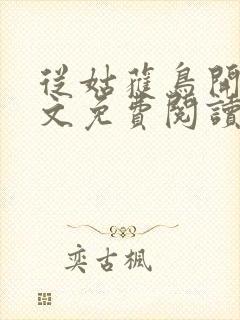 從姑獲鳥開
文免費閱讀
奕古楓